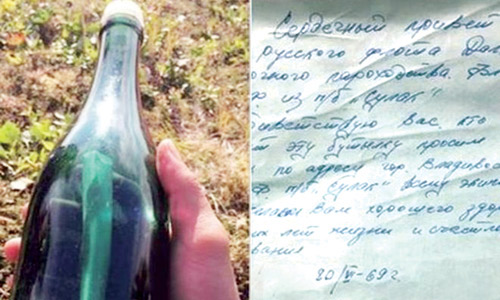 Сердечный привет
русского флота Дал
очного пароходства.
из п/б "Сулак"
ветствую вас, кто
т эту бутылку просим
по адресу гор. Владивос
п/б "Сулак" всему экип
Вам хорошего здор
их лет жизни и счастли
вания
20/VI-69г.